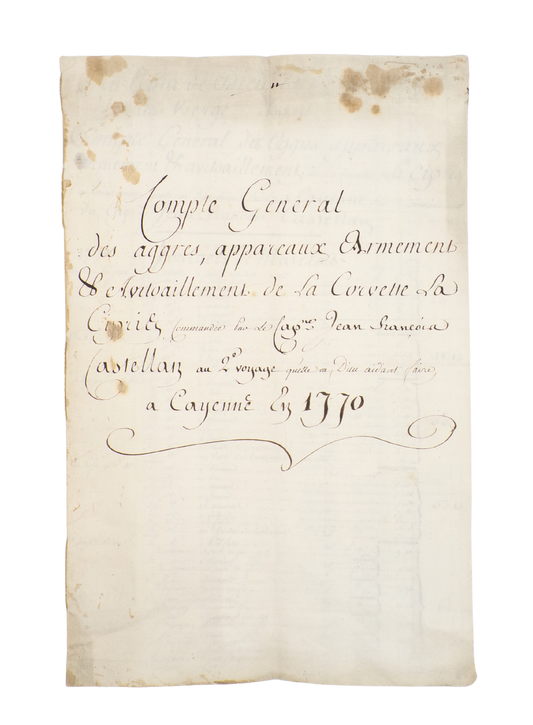 Compte General
des aggres, appareaux Armement
& avitvaillement de La Corvette La
Cyprien Commandée par Le Cap.ne Jean françois
Castellan au 2e voyage quelle va Dieu aidant faire
a Cayenne En 1770